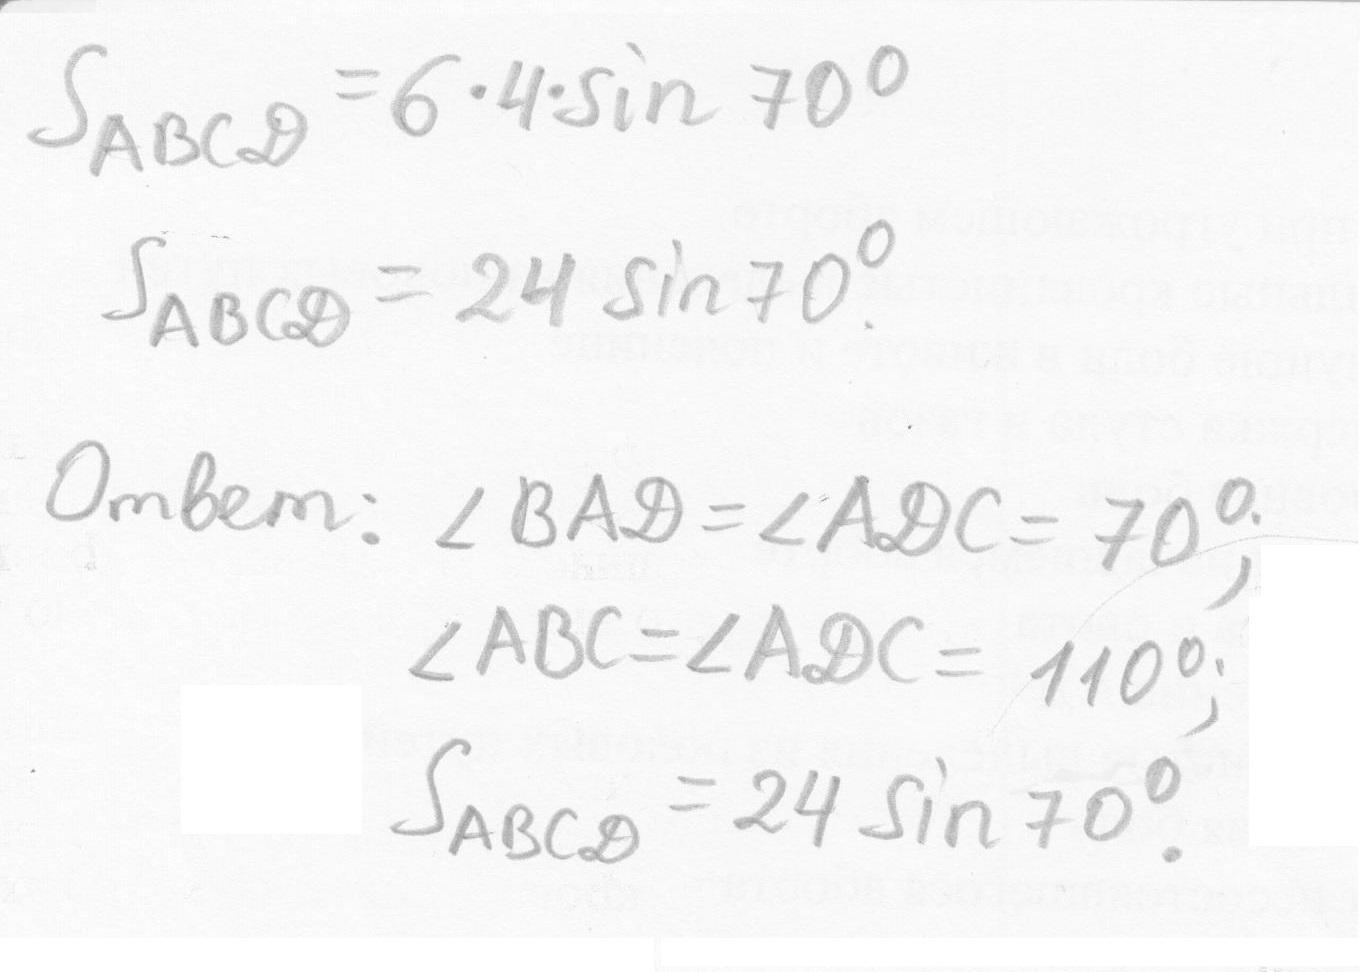 S_ABCD = 6·4·sin 70°
S_ABCD = 24 sin 70°.
Ответ: ∠BAD = ∠ADC = 70°;
∠ABC = ∠ADC = 110°;
S_ABCD = 24 sin 70°.